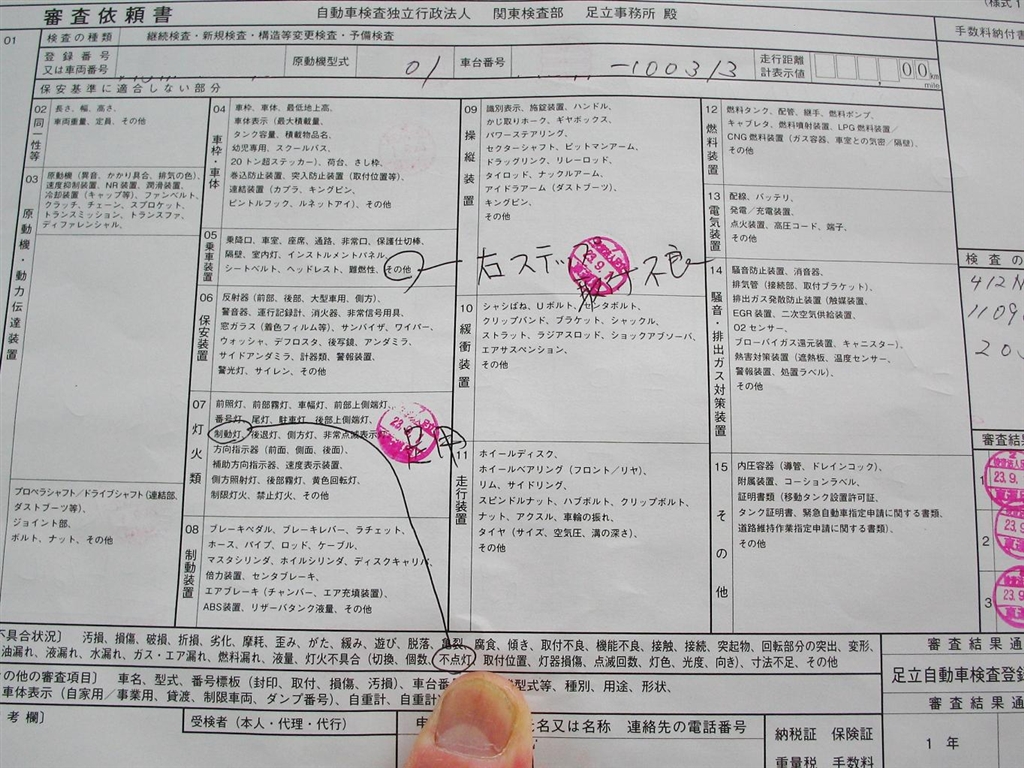 (様式1
審査依頼書
自動車検査独立行政法人 関東検査部 足立事務所 殿
手数料納付書
01
検査の種類 継続検査・新規検査・構造等変更検査・予備検査
登録番号
又は車両番号
原動機型式
01
車台番号
-100313
走行距離
計表示値
00
km
mile
保安基準に適合しない部分
02
同一性等
長さ、幅、高さ、
車両重量、定員、その他
03
原動機・動力伝達装置
原動機(異音、かかり具合、排気の色)、
速度抑制装置、NR装置、潤滑装置、
冷却装置(キャップ等)、ファンベルト、
クラッチ、チェーン、スプロケット、
トランスミッション、トランスファ、
ディファレンシャル、
プロペラシャフト/ドライブシャフト(連結部、
ダストブーツ等)、
ジョイント部、
ボルト、ナット、その他
04
車枠・車体
車枠、車体、最低地上高、
車体表示(最大積載量、
タンク容量、積載物品名、
幼児専用、スクールバス、
20トン超ステッカー)、荷台、さし枠、
巻込防止装置、突入防止装置(取付位置等)、
連結装置(カプラ、キングピン、
ピントルフック、ルネットアイ)、その他
05
乗車装置
乗降口、車室、座席、通路、非常口、保護仕切棒、
隔壁、室内灯、インストルメントパネル、
シートベルト、ヘッドレスト、難燃性、その他
06
保安装置
反射器(前部、後部、大型車用、側方)、
警音器、運行記録計、消火器、非常信号用具、
窓ガラス(着色フィルム等)、サンバイザ、ワイパー、
ウォッシャ、デフロスタ、後写鏡、アンダミラ、
サイドアンダミラ、計器類、警報装置、
警光灯、サイレン、その他
07
灯火類
前照灯、前部霧灯、車幅灯、前部上側端灯、
番号灯、尾灯、駐車灯、後部上側端灯、
制動灯、後退灯、側方灯、非常点滅表示
方向指示器(前面、側面、後面)、
補助方向指示器、速度表示装置、
側方照射灯、後部霧灯、黄色回転灯、
制限灯火、禁止灯火、その他
08
制動装置
ブレーキペダル、ブレーキレバー、ラチェット、
ホース、パイプ、ロッド、ケーブル、
マスタシリンダ、ホイルシリンダ、ディスクキャリパ、
倍力装置、センタブレーキ、
エアブレーキ(チャンバー、エア充填装置)、
ABS装置、リザーバタンク液量、その他
09
操縦装置
識別表示、施錠装置、ハンドル、
かじ取りホーク、ギヤボックス、
パワーステアリング、
セクターシャフト、ピットマンアーム、
ドラッグリンク、リレーロッド、
タイロッド、ナックルアーム、
アイドラアーム(ダストブーツ)、
キングピン、
その他
右ステップ
取付不良
23.9.1
10
緩衝装置
シャシばね、Uボルト、センタボルト、
クリップバンド、ブラケット、シャックル、
ストラット、ラジアスロッド、ショックアブソーバ、
エアサスペンション、
その他
11
走行装置
ホイールディスク、
ホイールベアリング(フロント/リヤ)、
リム、サイドリング、
スピンドルナット、ハブボルト、クリップボルト、
ナット、アクスル、車輪の振れ、
タイヤ(サイズ、空気圧、溝の深さ)、
その他
12
燃料装置
燃料タンク、配管、継手、燃料ポンプ、
キャブレタ、燃料噴射装置、LPG燃料装置/
CNG燃料装置(ガス容器、車室との気密/隔壁)、
その他
13
電気装置
配線、バッテリ、
発電/充電装置、
点火装置、高圧コード、端子、
その他
14
騒音・排出ガス対策装置
騒音防止装置、消音器、
排気管(接続部、取付ブラケット)、
排出ガス発散防止装置(触媒装置、
EGR装置、二次空気供給装置、
O2センサー、
ブローバイガス還元装置、キャニスター)、
熱害対策装置(遮熱板、温度センサー、
警報装置、処置ラベル)、
その他
15
その他
内圧容器(導管、ドレインコック)、
附属装置、コーションラベル、
証明書類(移動タンク設置許可証、
タンク証明書、緊急自動車指定申請に関する書類、
道路維持作業指定申請に関する書類)、
その他
検査の
412N
1109
203
審査結果
1
23.9.
2
3
23.9.
不具合状況〕 汚損、損傷、破損、折損、劣化、摩耗、歪み、がた、緩み、遊び、脱落、亀裂、腐食、傾き、取付不良、機能不良、接触、接続、突起物、回転部分の突出、変形、
油漏れ、液漏れ、水漏れ、ガス・エア漏れ、燃料漏れ、液量、灯火不具合(切換、個数、不点灯、取付位置、灯器損傷、点滅回数、灯色、光度、向き)、寸法不足、その他
の他の審査項目〕 車名、型式、番号標板(封印、取付、損傷、汚損)、車台番 型式等、種別、用途、形状、
車体表示(自家用/事業用、貸渡、制限車両、ダンプ番号)、自重計、自重計
考欄〕
受検者(本人・代理・代行)
申
名又は名称 連絡先の電話番号
納税証 保険証
重量税 手数料
審査結果通
足立自動車検査登録
審査結果通
1 年